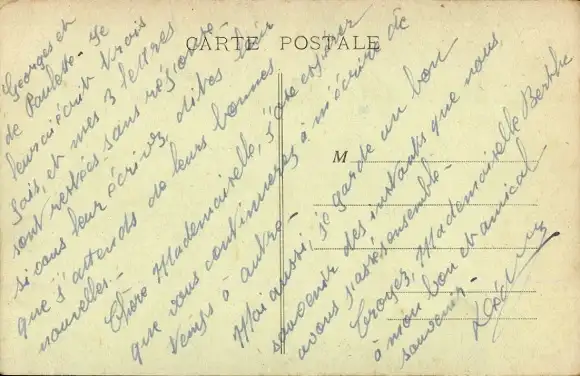 CARTE POSTALE
M
Georges et
de Paulette. Je
leur ai écrit trois
fois, et mes 3 lettres
sont restées sans réponse
si vous leur écrivez, dites leur
que j'attends de leurs bonnes
nouvelles.-
Chère Mademoiselle, j'ose espérer
que vous continuerez à m'écrire de
temps à autre.-
Moi aussi, je garde un bon
souvenir des instants que nous
avons passés ensemble.-
Croyez, Mademoiselle Berthe
à mon bon et amical
souvenir.-